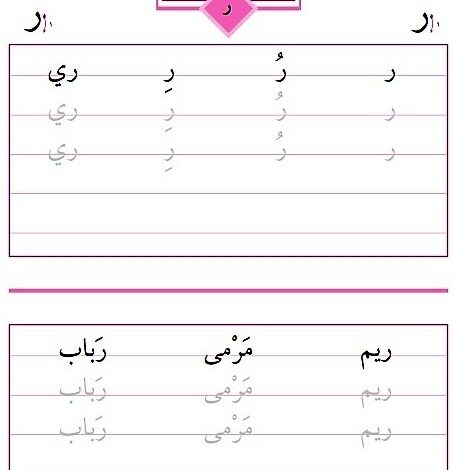 ر
ر ر
ر رُ رِ ري
ر رُ رِ ري
ر رُ رِ ري
ريم مَرْمى رَباب
ريم مَرْمى رَباب
ريم مَرْمى رَباب